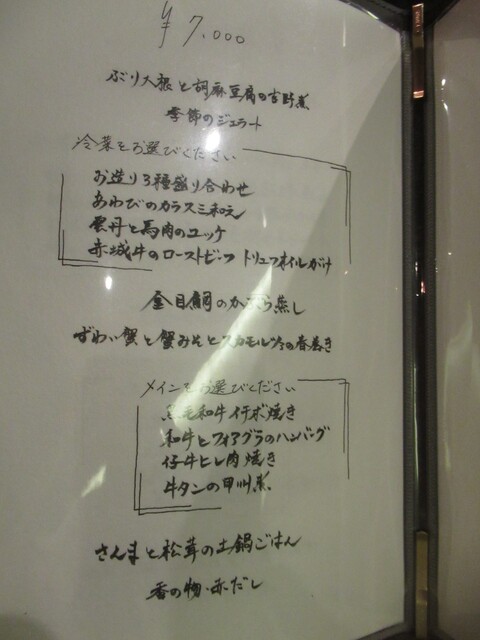 ¥7,000
ぶり大根と胡麻豆腐の吉野煮
季節のジェラート
冷菜をお選びください
お造り3種盛り合わせ
あわびのカラスミ和え
雲丹と馬肉のユッケ
赤城牛のローストビーフ トリュフオイルがけ
金目鯛のかぶら蒸し
ずわい蟹と蟹みそとスカモルツァの春巻き
メインをお選びください
黒毛和牛イチボ焼き
和牛とフォアグラのハンバーグ
仔牛ヒレ肉焼き
牛タンの甲州煮
さんまと松茸の土鍋ごはん
香の物・赤だし